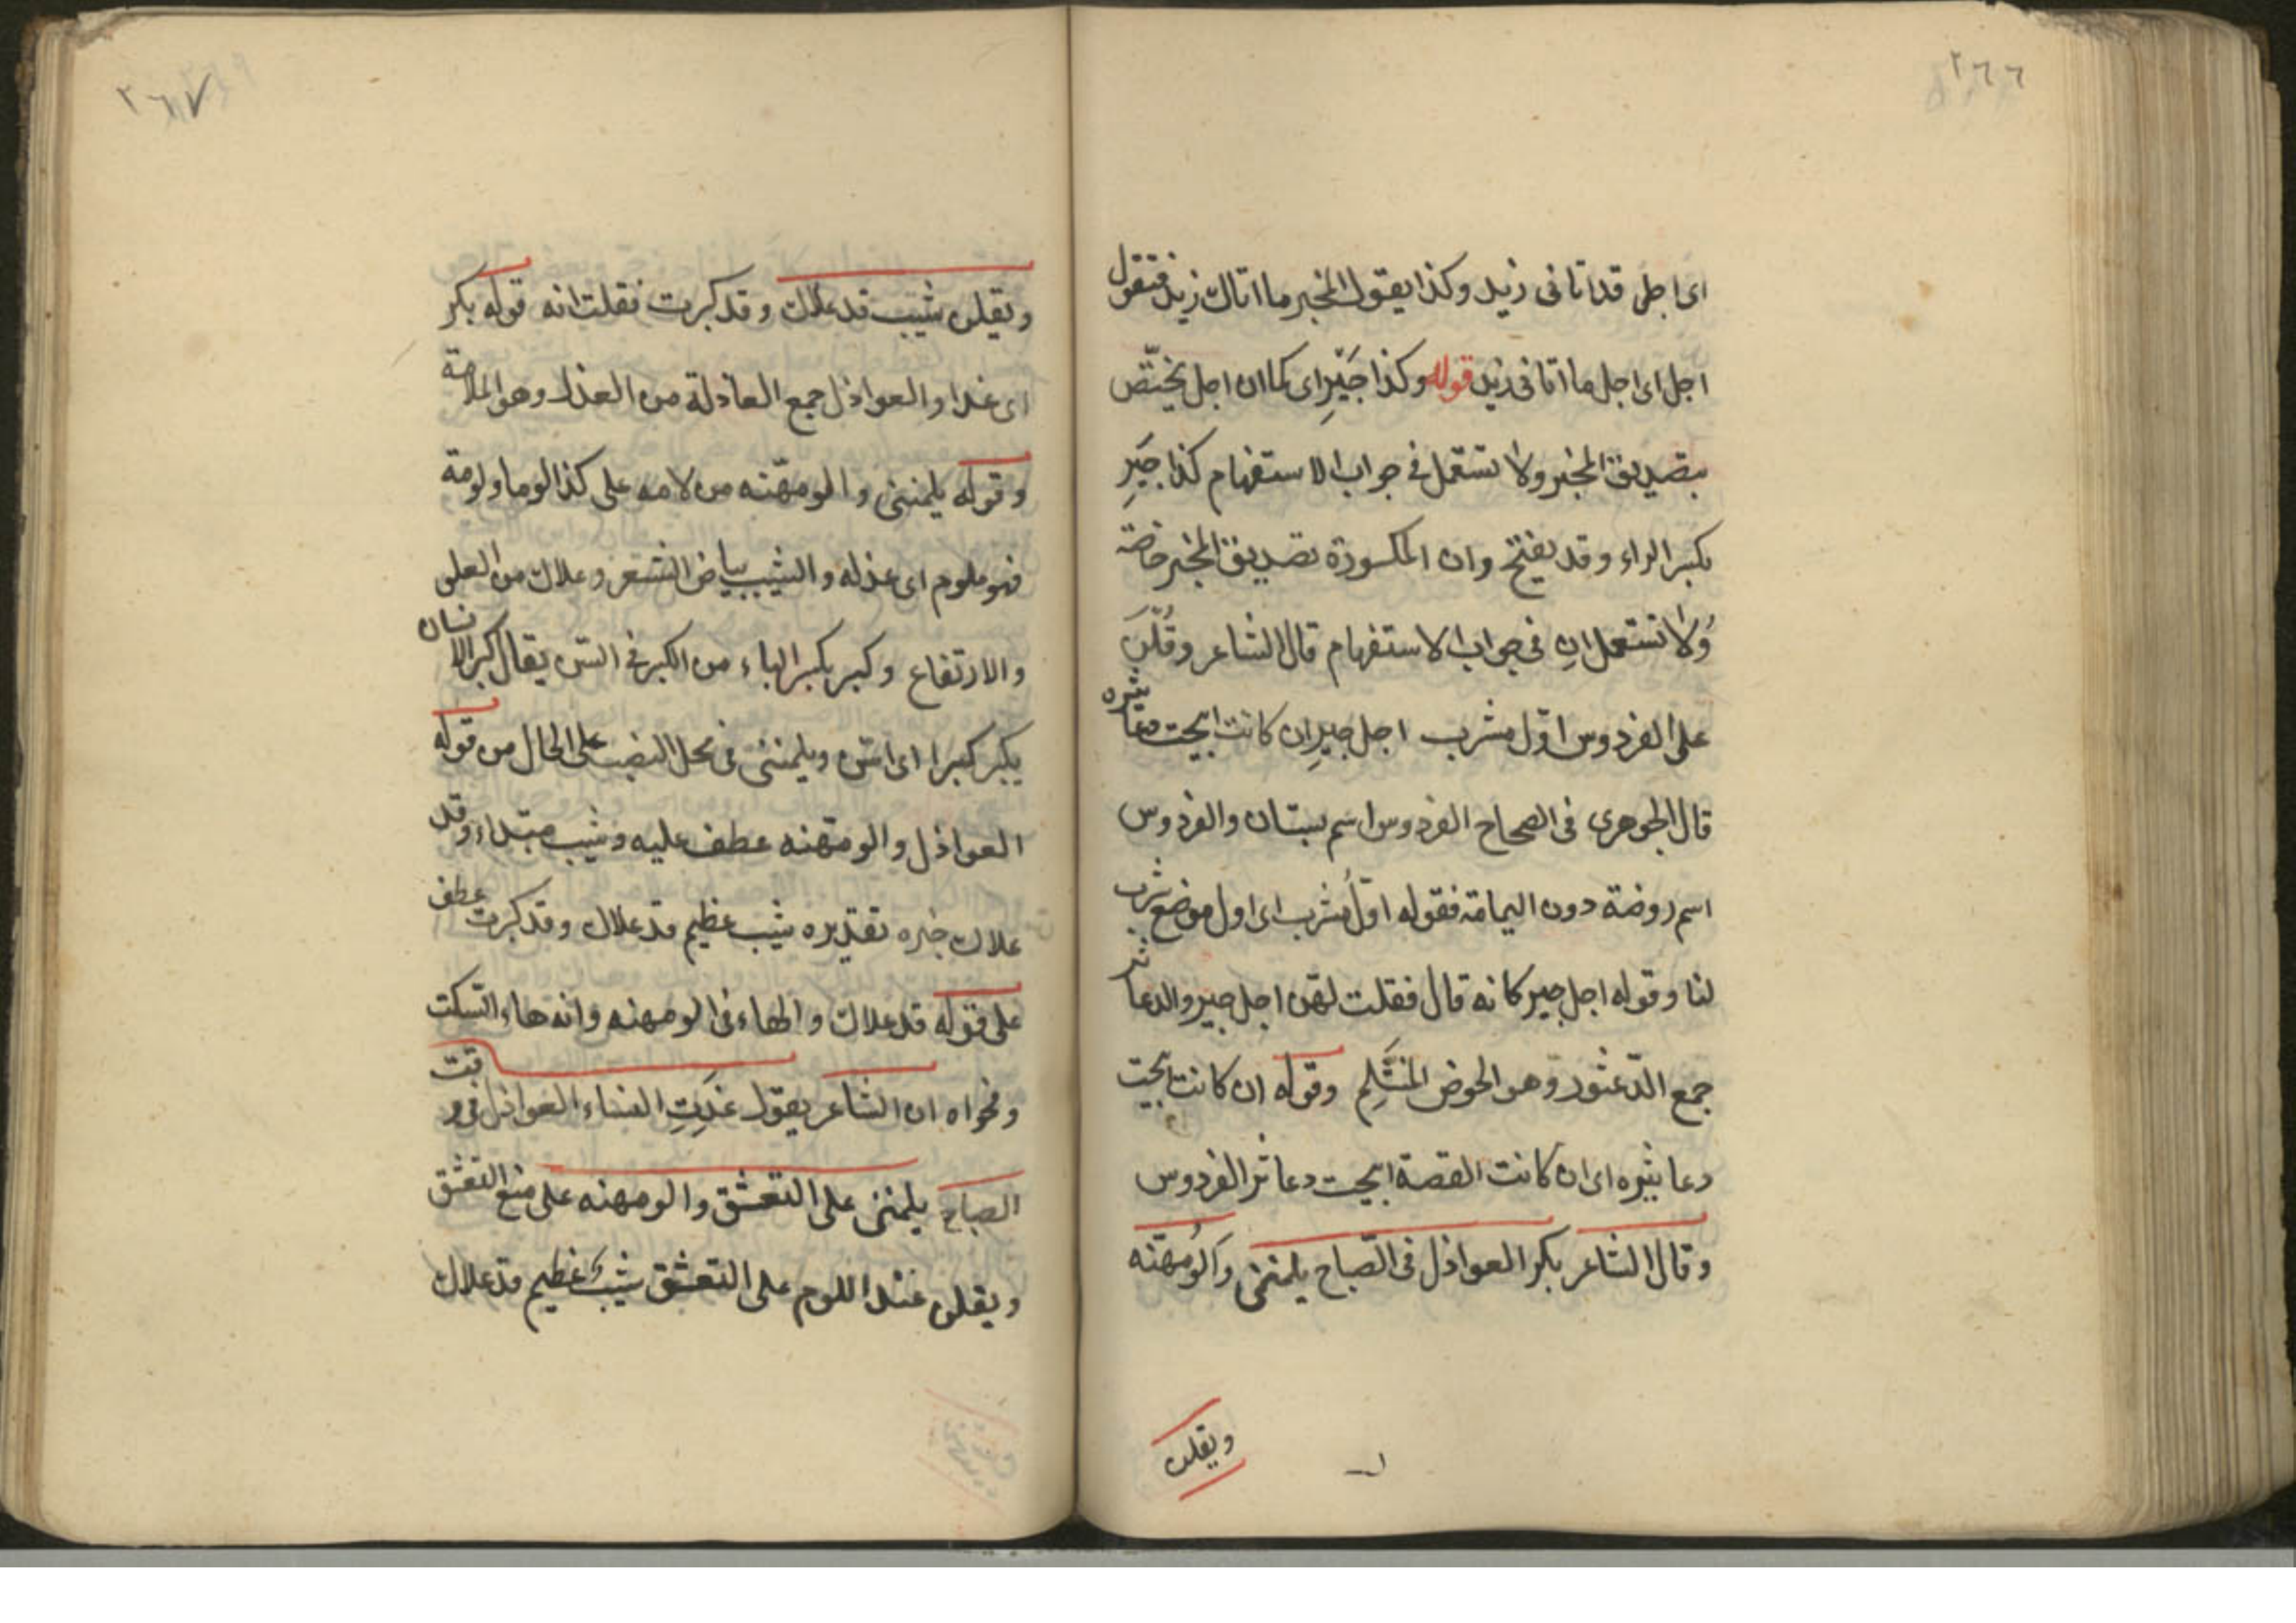 ٢٦٦
اى اجل قد اتانى زيد وكذا يقول المخبر ما اتاك زيد فتقول
اجل اى اجل ما اتانى زيد قوله وكذا جَيْرِ اى كما ان اجل يختصّ
بتصديق المخبر ولا تستعمل فى جواب الاستفهام كذا جَيرِ
بكسر الراء وقد يفتح وان المكسورة تصديق المخبر خاصّة
ولا تستعمل ان فى جواب الاستفهام قال الشاعر وقُلْنَ
على الفردوس اوّل مشرب اجل جيرِ ان كانت ابيحت دعاثيره
قال الجوهرى فى الصحاح الفردوس اسم بستان والفردوس
اسم روضة دون اليمامة فقوله اوّلُ مشرب اى اول موضع شرب
لنا وقوله اجل جير كانه قال فقلت لهن اجل جير والدعاثر
جمع الدّعثور وهو الحوض المتثَلِّم وقوله ان كانت ابيحت
دعاثيره اى ان كانت القصة ابيحت دعاثر الفردوس
وقال الشاعر بكر العواذل فى الصّباح يلمننى وألومُهنّه
ويقلن
٢٦٧
ويقلن شيب قد علاك وقد كبرت فقلت انه قوله بكر
اى غدا والعواذل جمع العاذلة من العذل وهو الملامة
وقوله يلمننى والومهّنه من لامه على كذا لوما ولومة
فهو ملوم اى عذله والشيب بياض الشعر وعلاك من العلى
والارتفاع وكبر بكسر الباء من الكبر فى السّن يقال كبر الانسان
يكبر كبرا اى اسّن ويلمننى فى محل النصب على الحال من قوله
العواذل والومهنه عطف عليه وشيب مبتداء وقد
علاك خبره تقديره شيب عظيم قد علاك وقد كبرت عطف
على قوله قد علاك والهاء فى الومهنه وانه هاء السّكت
وفحواه ان الشاعر يقول غَدَتِ النساء العواذل فى وقت
الصباح يلمننى على التعشّق والومهنه على منع التعشق
ويقلن عند اللوم على التعشّق شيبٌ عظيم قد علاك